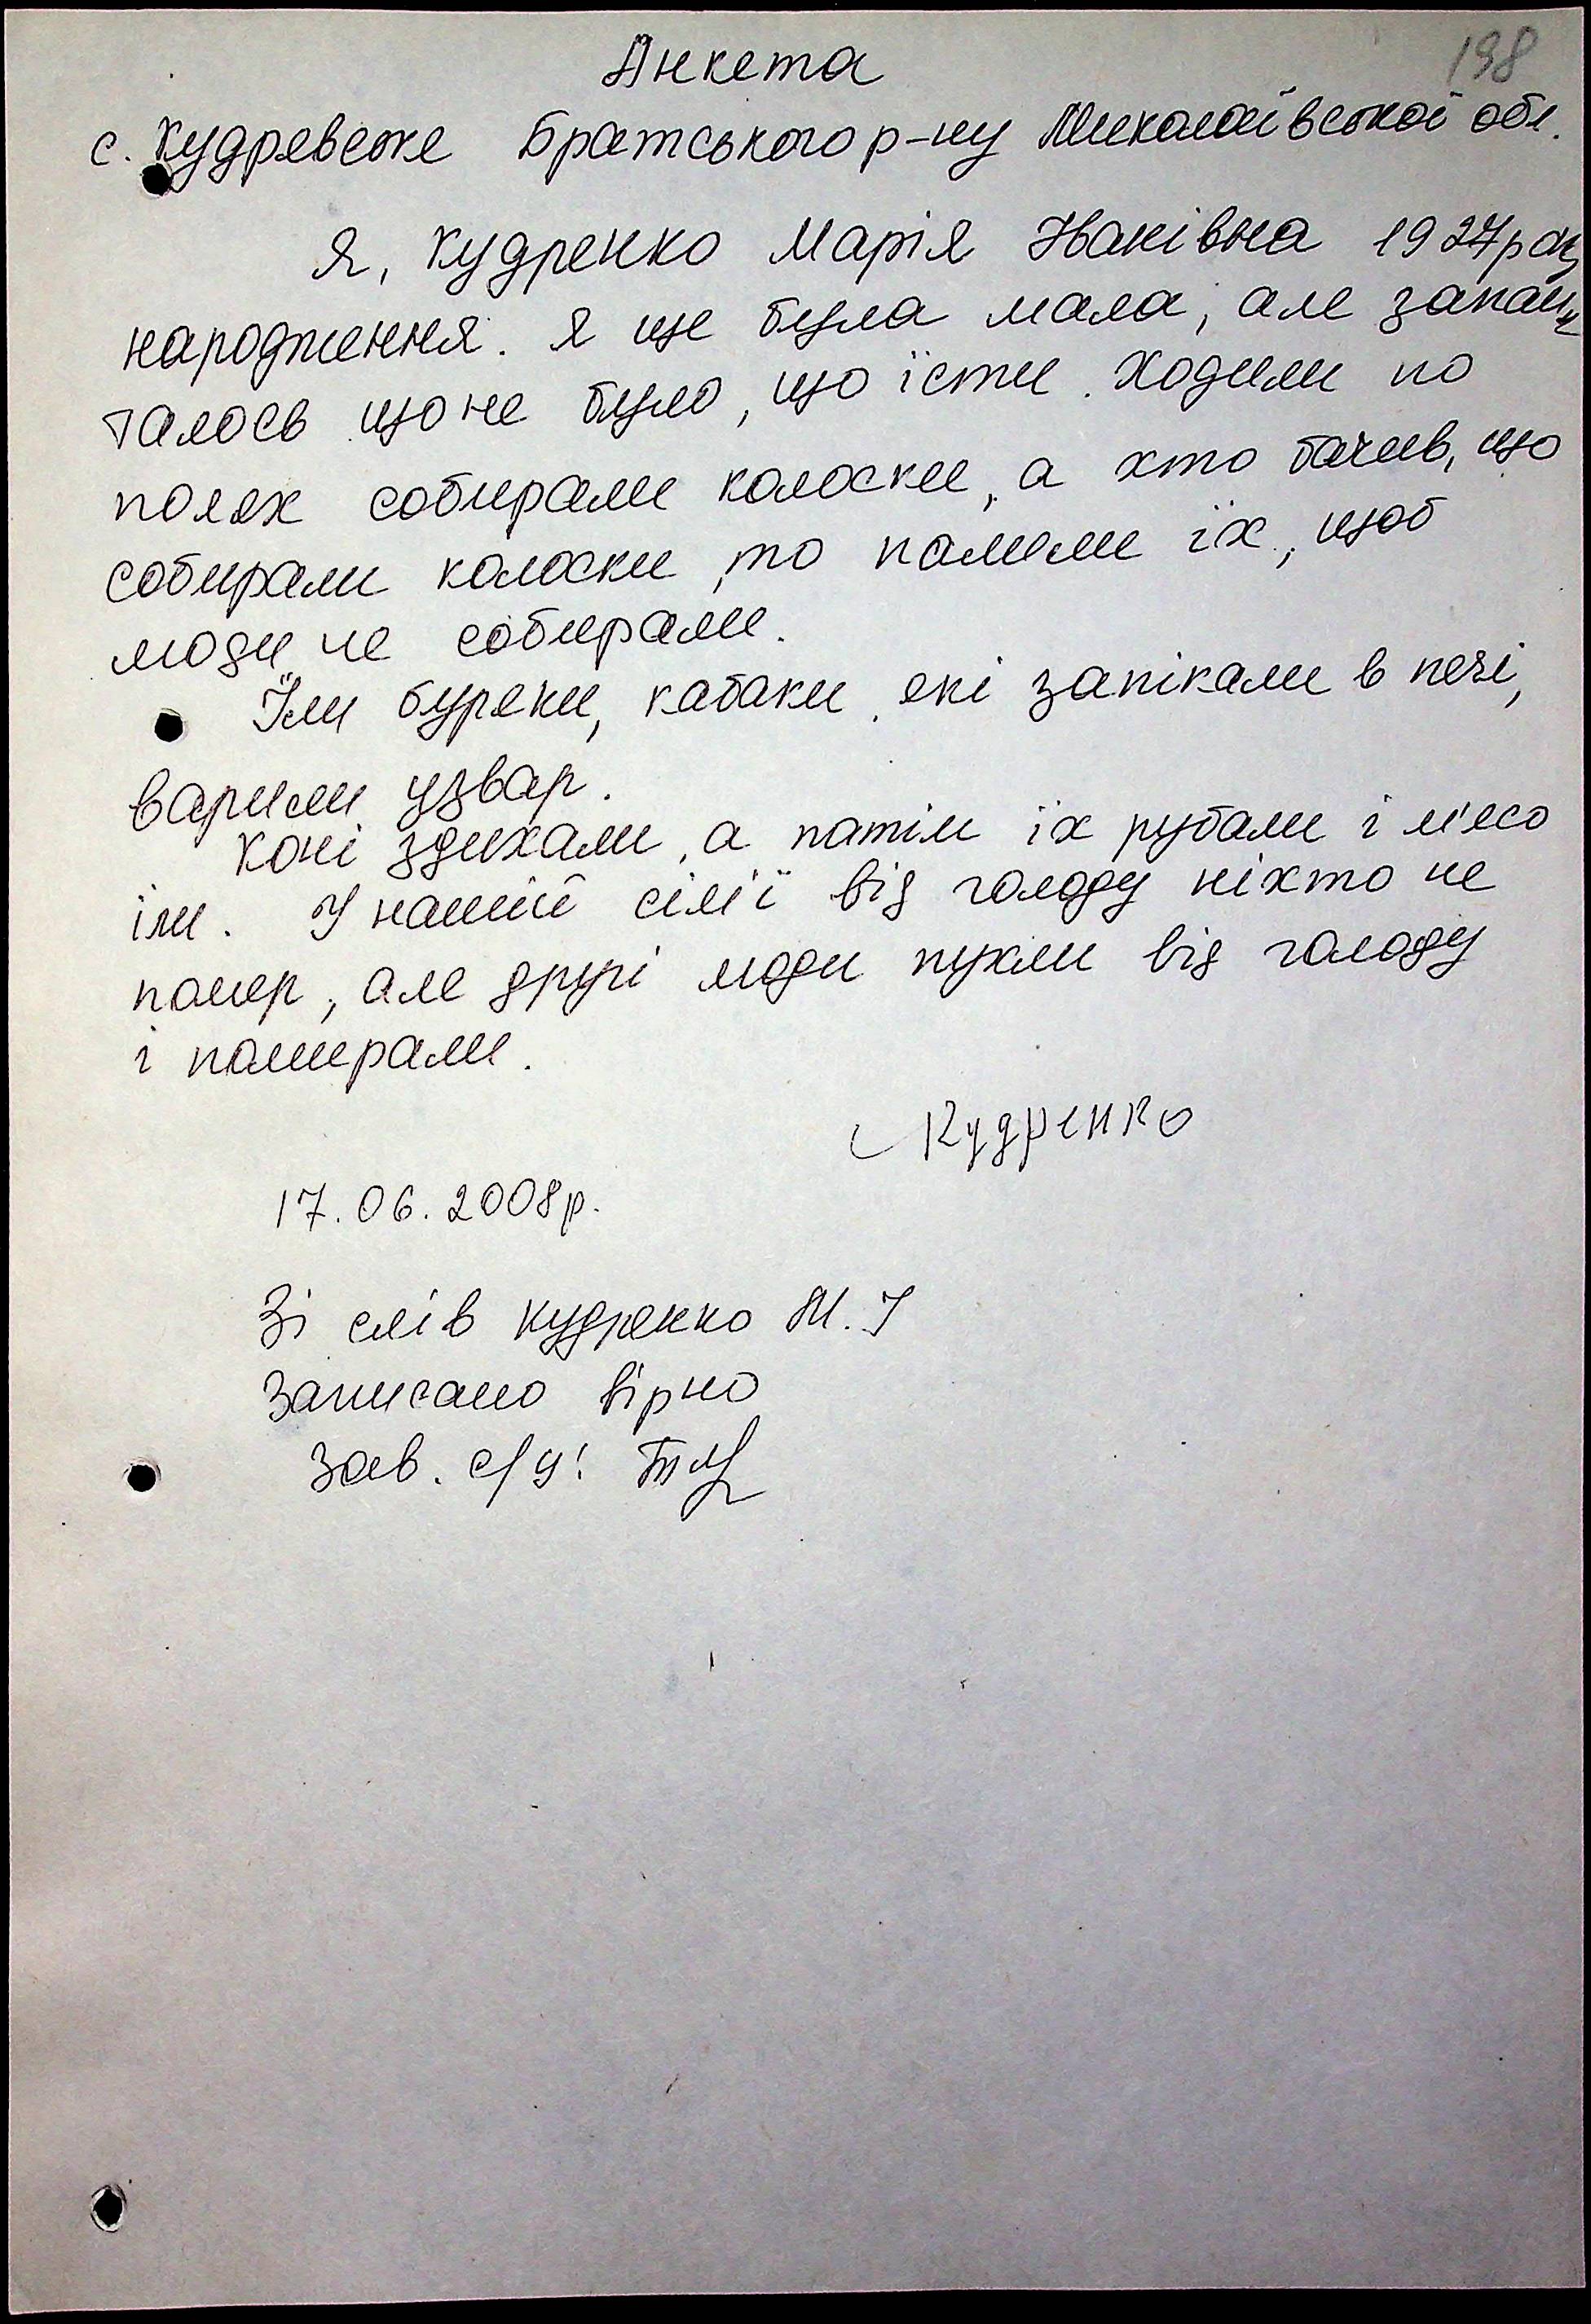 198
Анкета
с. Кудрявське Братського р-ну Миколаївської обл.
Я, Кудренко Марія Іванівна 1927 року
народження. Я ще була мала, але запамя
талось що не було, що їсти. Ходили по
полях собирали колоски, а хто бачив, що
собирали колоски, то палили їх, щоб
люди не собирали.
Їли буряки, кабаки, які запікали в печі,
варили узвар.
Коні здихали, а патім їх рубали і м'ясо
іли. У нашій сім'ї від голоду ніхто не
помер, але другі люди пухли від голоду
і помирали.
Кудренко
17.06.2008р.
Зі слів Кудренко М. І
Записано вірно
Зав. с/у: